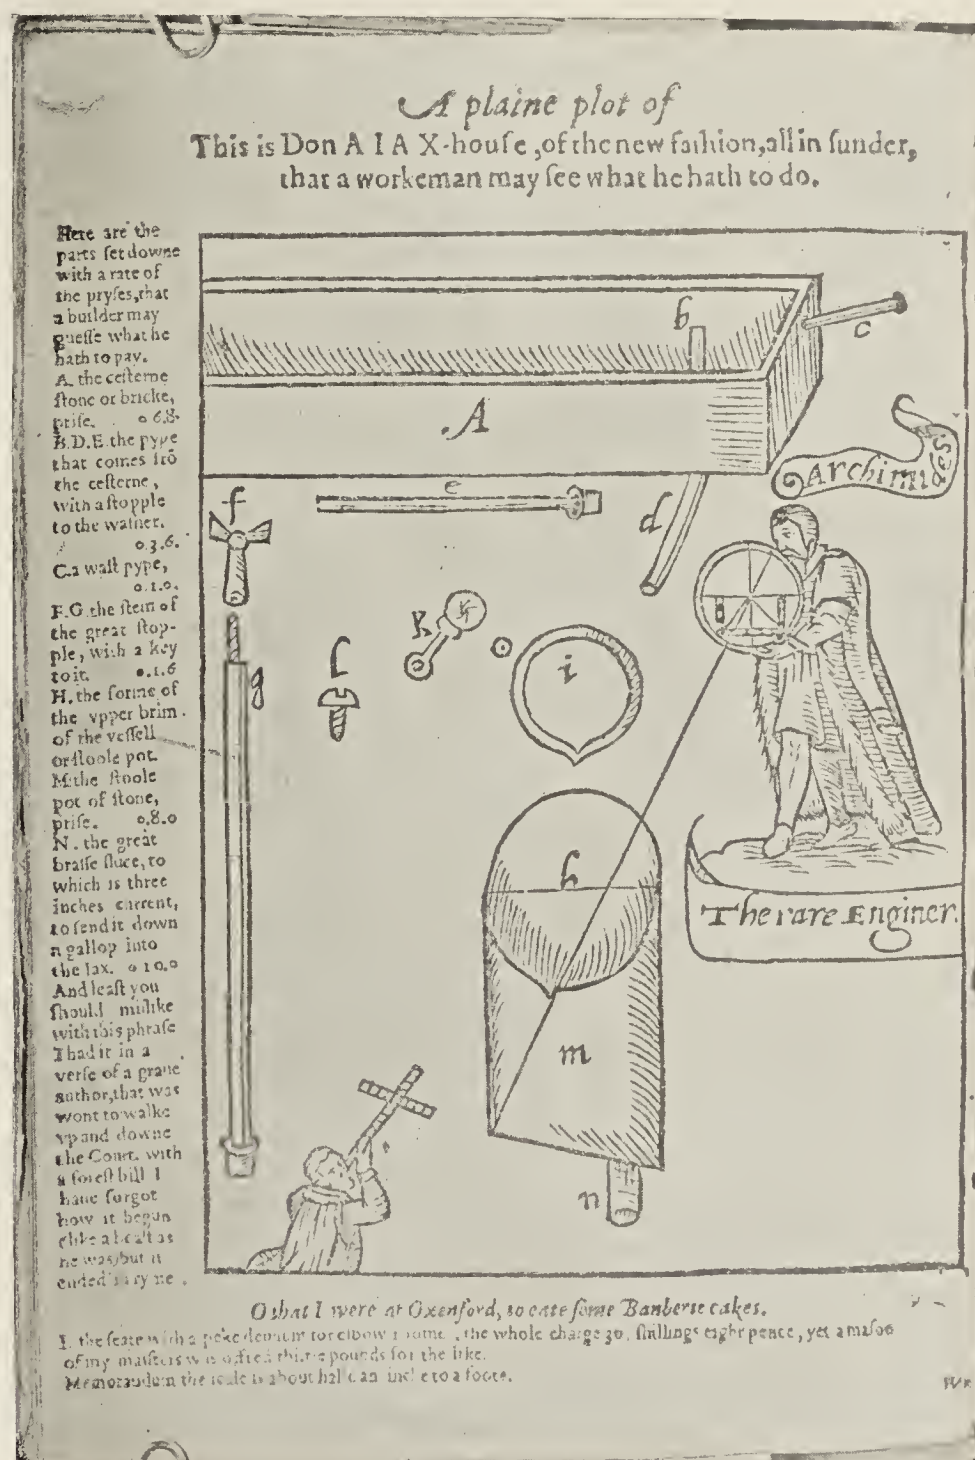 A plaine plot of
This is Don A I A X-houſe, of the new faſhion, all in ſunder,
that a workeman may ſee what he hath to do.
Here are the
parts ſet downe
with a rate of
the pryſes, that
a builder may
gueſſe what he
hath to pay.
A. the ceſterne
ſtone or bricke,
priſe. 0 6.8.
B.D.E. the pype
that comes frō
the ceſterne,
with a ſtopple
to the waſher.
0.3.6.
C. a waſt pype,
0.1.0.
F.G. the ſtem of
the great ſtop-
ple, with a key
to it. 0.1.6
H. the forme of
the vpper brim
of the veſſell
or ſtoole pot.
M. the ſtoole
pot of ſtone,
priſe. 0.8.0
N. the great
braſſe ſluce, to
which is three
inches current,
to ſend it down
a gallop into
the Iax. 0 10.0
And leaſt you
ſhould miſlike
with this phraſe
I had it in a
verſe of a graue
author, that was
wont to walke
vp and downe
the Court, with
a foreſt bill I
haue forgot
how it begun
(like a beaſt as
he was) but it
ended in ryme.
b
c
A
e
Archimides
f
d
K
l
i
g
h
The rare Enginer.
m
n
O that I were at Oxenford, to eate ſome Banberie cakes.
I. the ſeate with a peke deuant for elbow roome, the whole charge 30. ſhillings eight pence, yet a maſon
of my maiſters was offred thirtie pounds for the like.
Memorandum the ſcale is about halfe an inche to a foote.